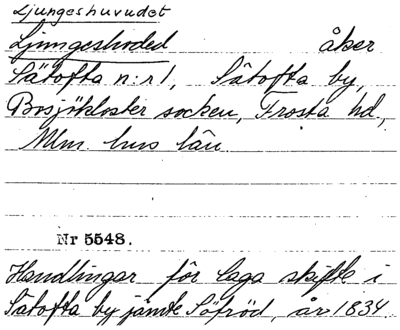 Ljungeshuvudet
Ljungeshoded åker
Sätofta n:r 1, Sätofta by,
Bosjökloster socken, Frosta hd,
Mlm. hus län.
Nr 5548.
Handlingar för laga skifte i
Sätofta by jämte Söfröd, år 1834.